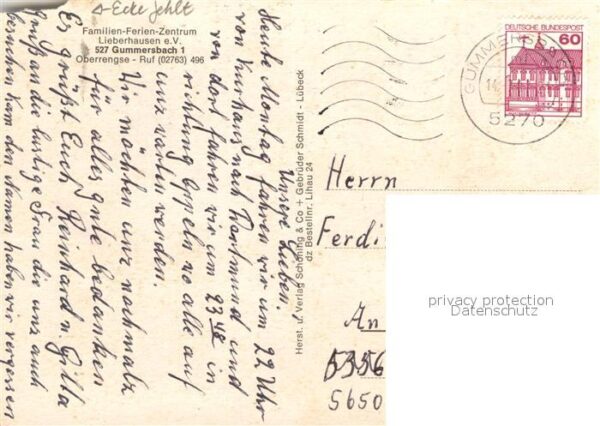 Ecke fehlt
Familien-Ferien-Zentrum
Lieberhausen e.V.
527 Gummersbach 1
Oberrengse - Ruf (02763) 496
Unsere Lieben.
Heute Montag fahren wir um 22 Uhr
vom Kurhaus nach Dortmund und
von dort fahren wir um 23 48 in
richtung Oppeln wo alle auf
unz warten werden.
Wir möchten unz nochmalz
für alles gute bedanken
Es grüßt Euch Reinhard u. Gitta
Gruß an die lustige Frau die uns auch
besuchen kam den Namen haben wir vergessen
Herst. u. Verlag Schöning & Co + Gebrüder Schmidt - Lübeck
dz Bestellnr. Lihau 24
DEUTSCHE BUNDESPOST
60
GUMMERSBACH
5270
Herrn
Ferdi
An
5356
5650
privacy protection
Datenschutz